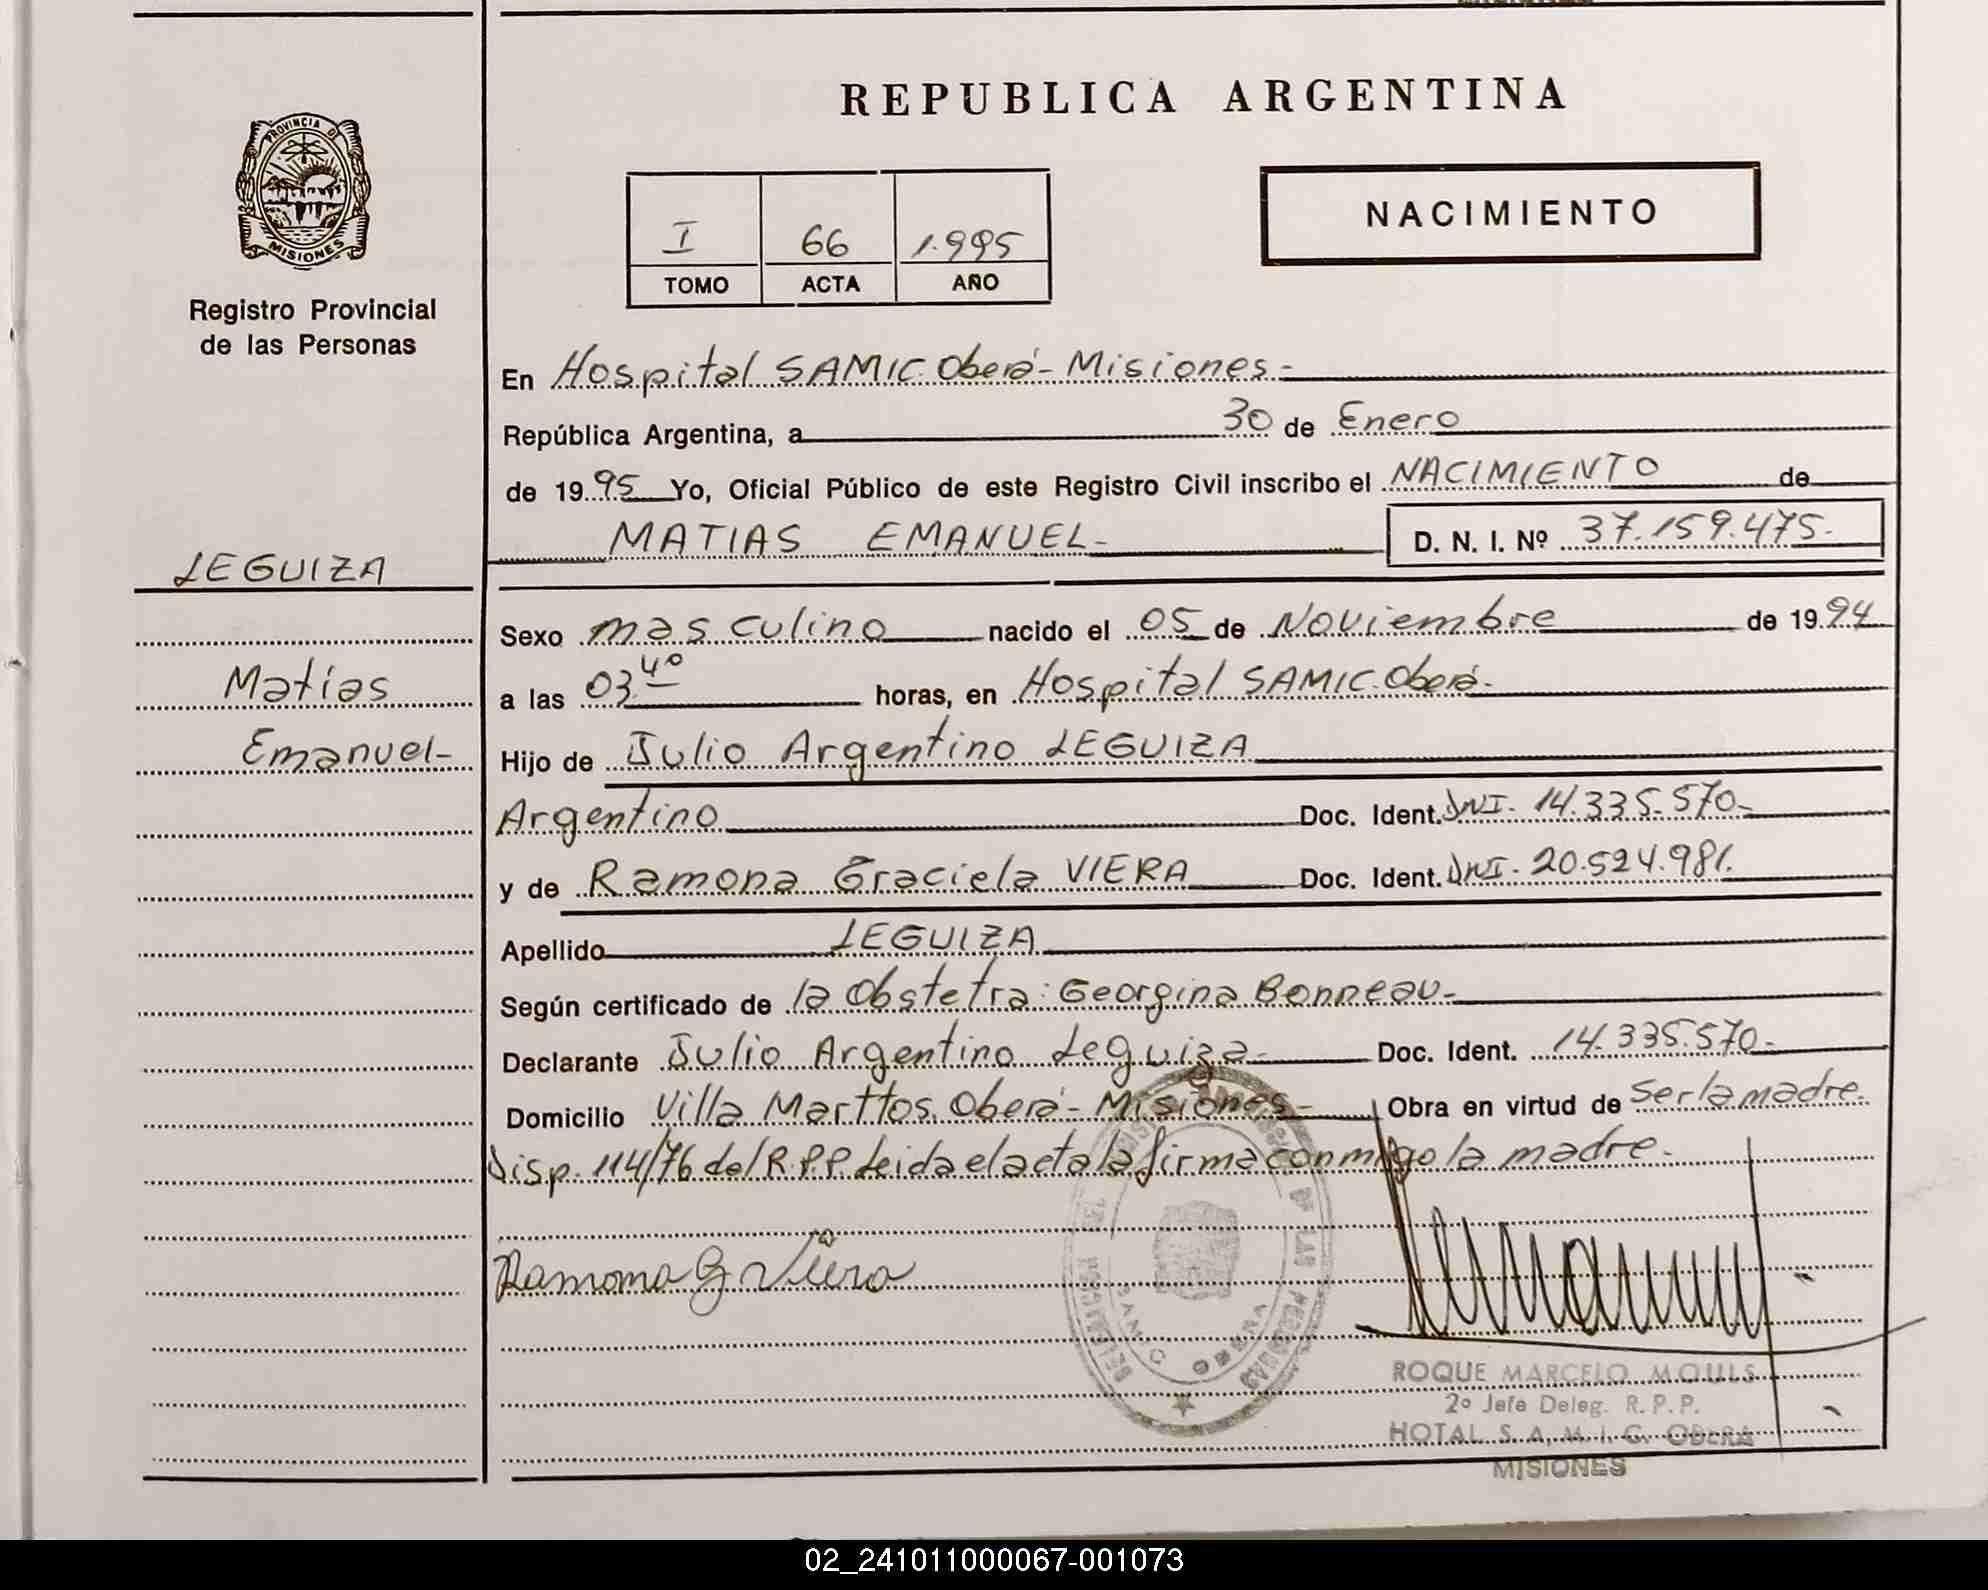 REPUBLICA ARGENTINA
PROVINCIA DE
MISIONES
Registro Provincial
de las Personas
I 66 1.995
TOMO ACTA AÑO
NACIMIENTO
En Hospital SAMIC. Oberá - Misiones.-
República Argentina, a 30 de Enero
de 1995 Yo, Oficial Público de este Registro Civil inscribo el NACIMIENTO de
MATIAS EMANUEL- D. N. I. Nº 37.159.475.-
LEGUIZA
Matías
Emanuel-
Sexo masculino nacido el 05 de Noviembre de 1994
a las 03.40 horas, en Hospital SAMIC. Oberá.-
Hijo de Julio Argentino LEGUIZA
Argentino Doc. Ident. DNI. 14.335.570.-
y de Ramona Graciela VIERA Doc. Ident. DNI. 20.524.981.
Apellido LEGUIZA
Según certificado de la Obstetra: Georgina Bonneau.-
Declarante Julio Argentino Leguiza- Doc. Ident. 14.335.570.-
Domicilio Villa Marttos. Oberá - Misiones- Obra en virtud de ser la madre.
Disp. 114/76 del R.P.P. Leida el acta la firma conmigo la madre.-
Ramona G Viera
DE LAS PERSONAS
SAMIC OBERA
ROQUE MARCELO MOULS
2º Jefe Deleg. R. P. P.
HOTAL S. A. M. I. C. OBERA
MISIONES
02_241011000067-001073